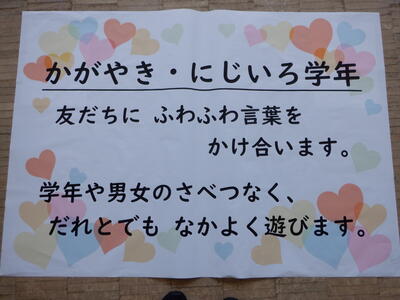 かがやき・にじいろ学年
友だちに ふわふわ言葉を
かけ合います。
学年や男女のさべつなく、
だれとでも なかよく遊びます。